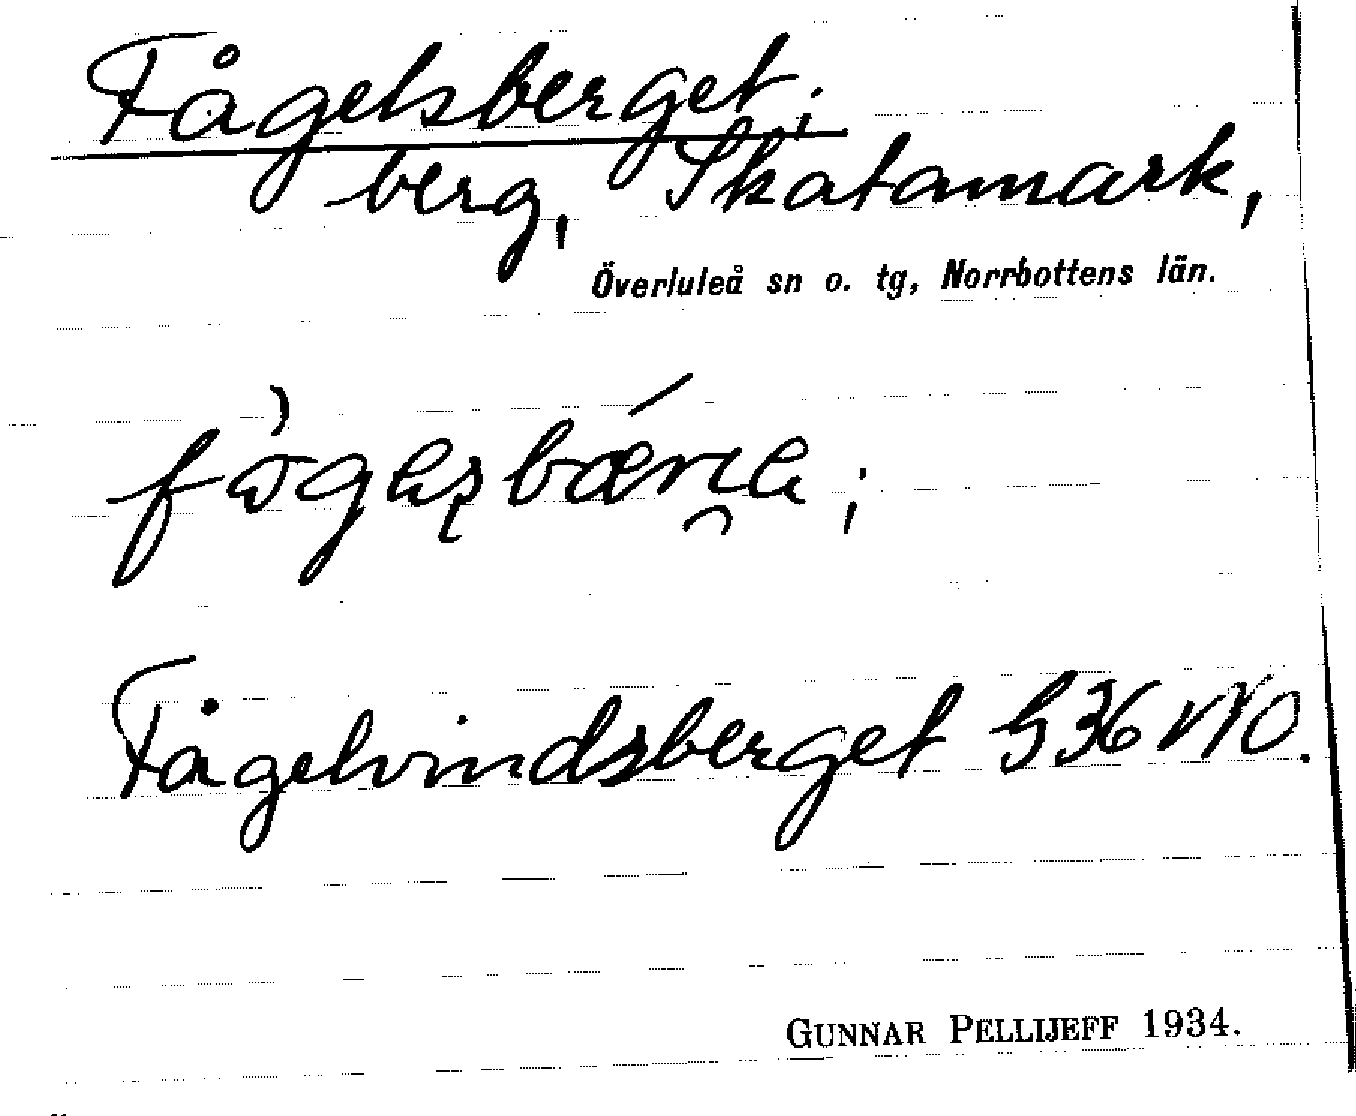 Fågelsberget;
berg, Skatamark,
Överluleå sn o. tg, Norrbottens län.
Fågelvindsberget G36 NO.
GUNNAR PELLIJEFF 1934.